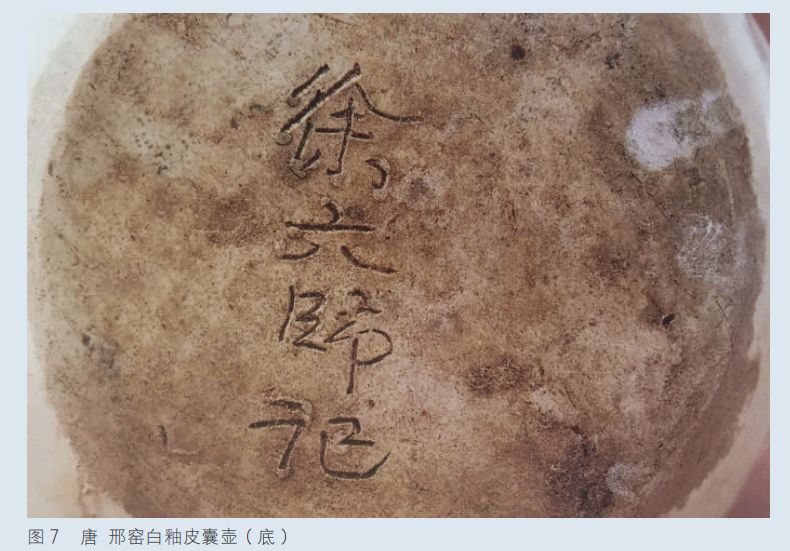 徐六師记
图7 唐 邢窑白釉皮囊壶(底)